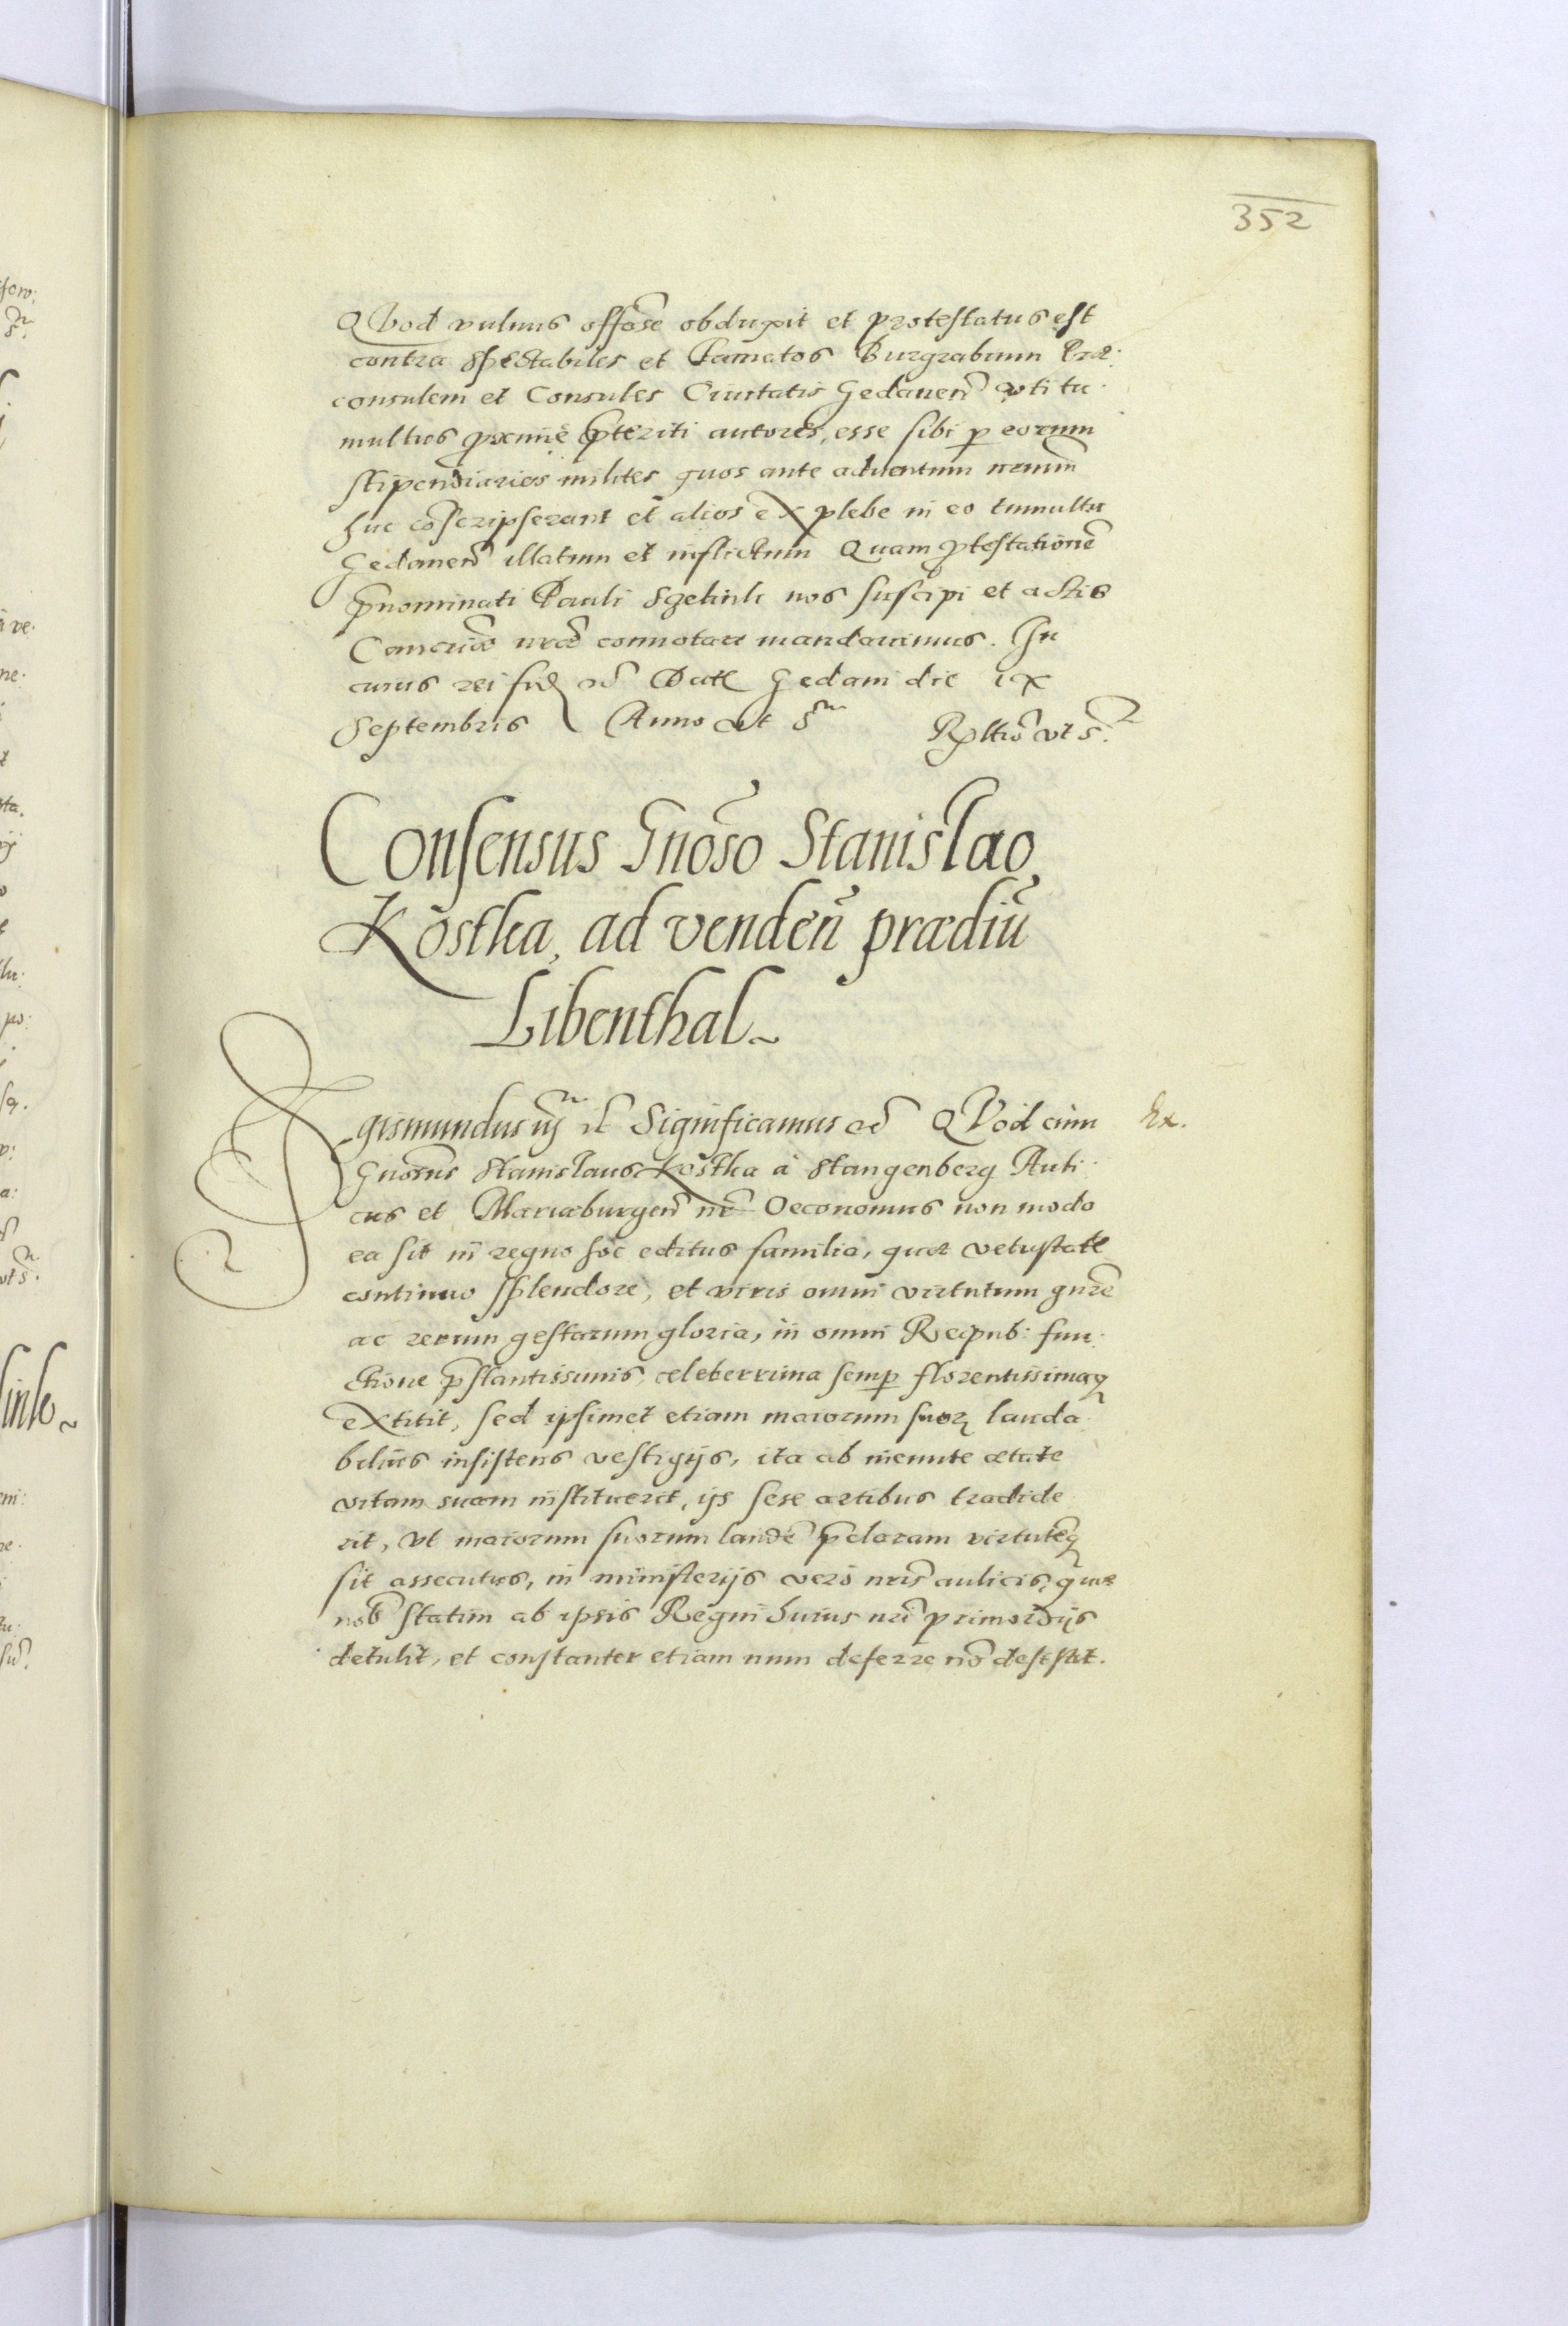 352
QVod vulnus offose obduxit et protestatus est
contra spectabiles et Famatos Burgrabium Præ:
consulem et Consules Ciuitatis Gedanen̄ vti tu:
multus ꝓxime p̄teriti autores, esse sibi p eorum
stipendiarios milites quos ante aduentum nr̄um
huc cōscripserant et alios ex plebe in eo tumultu
Gedanen̄ illatum et inflictum Quam ꝓtestationē
p̄nominati Pauli nos suscipi et actis
Cancr̄iæ nr̄æ connotari mandauimus. In
cuius rei fid Dat Gedani die IX
Septembris Anno vt sr̄a Rltio vt s.
Consensus Gnōso Stanislao
Kostka, ad venden̄ prædiū
Libenthal
Sigismundus iij Significamus QVod cum
Ex.
Gnōsus Stanislaus Kostka à Stangenberg Auli:
cus et Mariæburgen̄ nr̄ Oeconomus non modo
ea sit in regno hoc editus familia, quæ vetustate
continuo splendore, et viris omni virtutum gn̄re
ac rerum gestarum gloria, in omni Reipub: fun:
ctione p̄stantissimis, celeberrima semp florentissimaq
extitit, sed ipsimet etiam maiorum suorꝝ lauda
bilius insistens vestigijs, ita ab ineunte ætate
vitam suam instituerit, ijs sese artibus tradide
rit, vt maiorum suorum laudē p̄claram virtutēq
sit assecutus, in ministerijs verò nr̄is aulicis, quæ
nob̄ statim ab ipsis Regni huius nr̄i primordijs
detulit, et constanter etiam num deferre nō desistit.